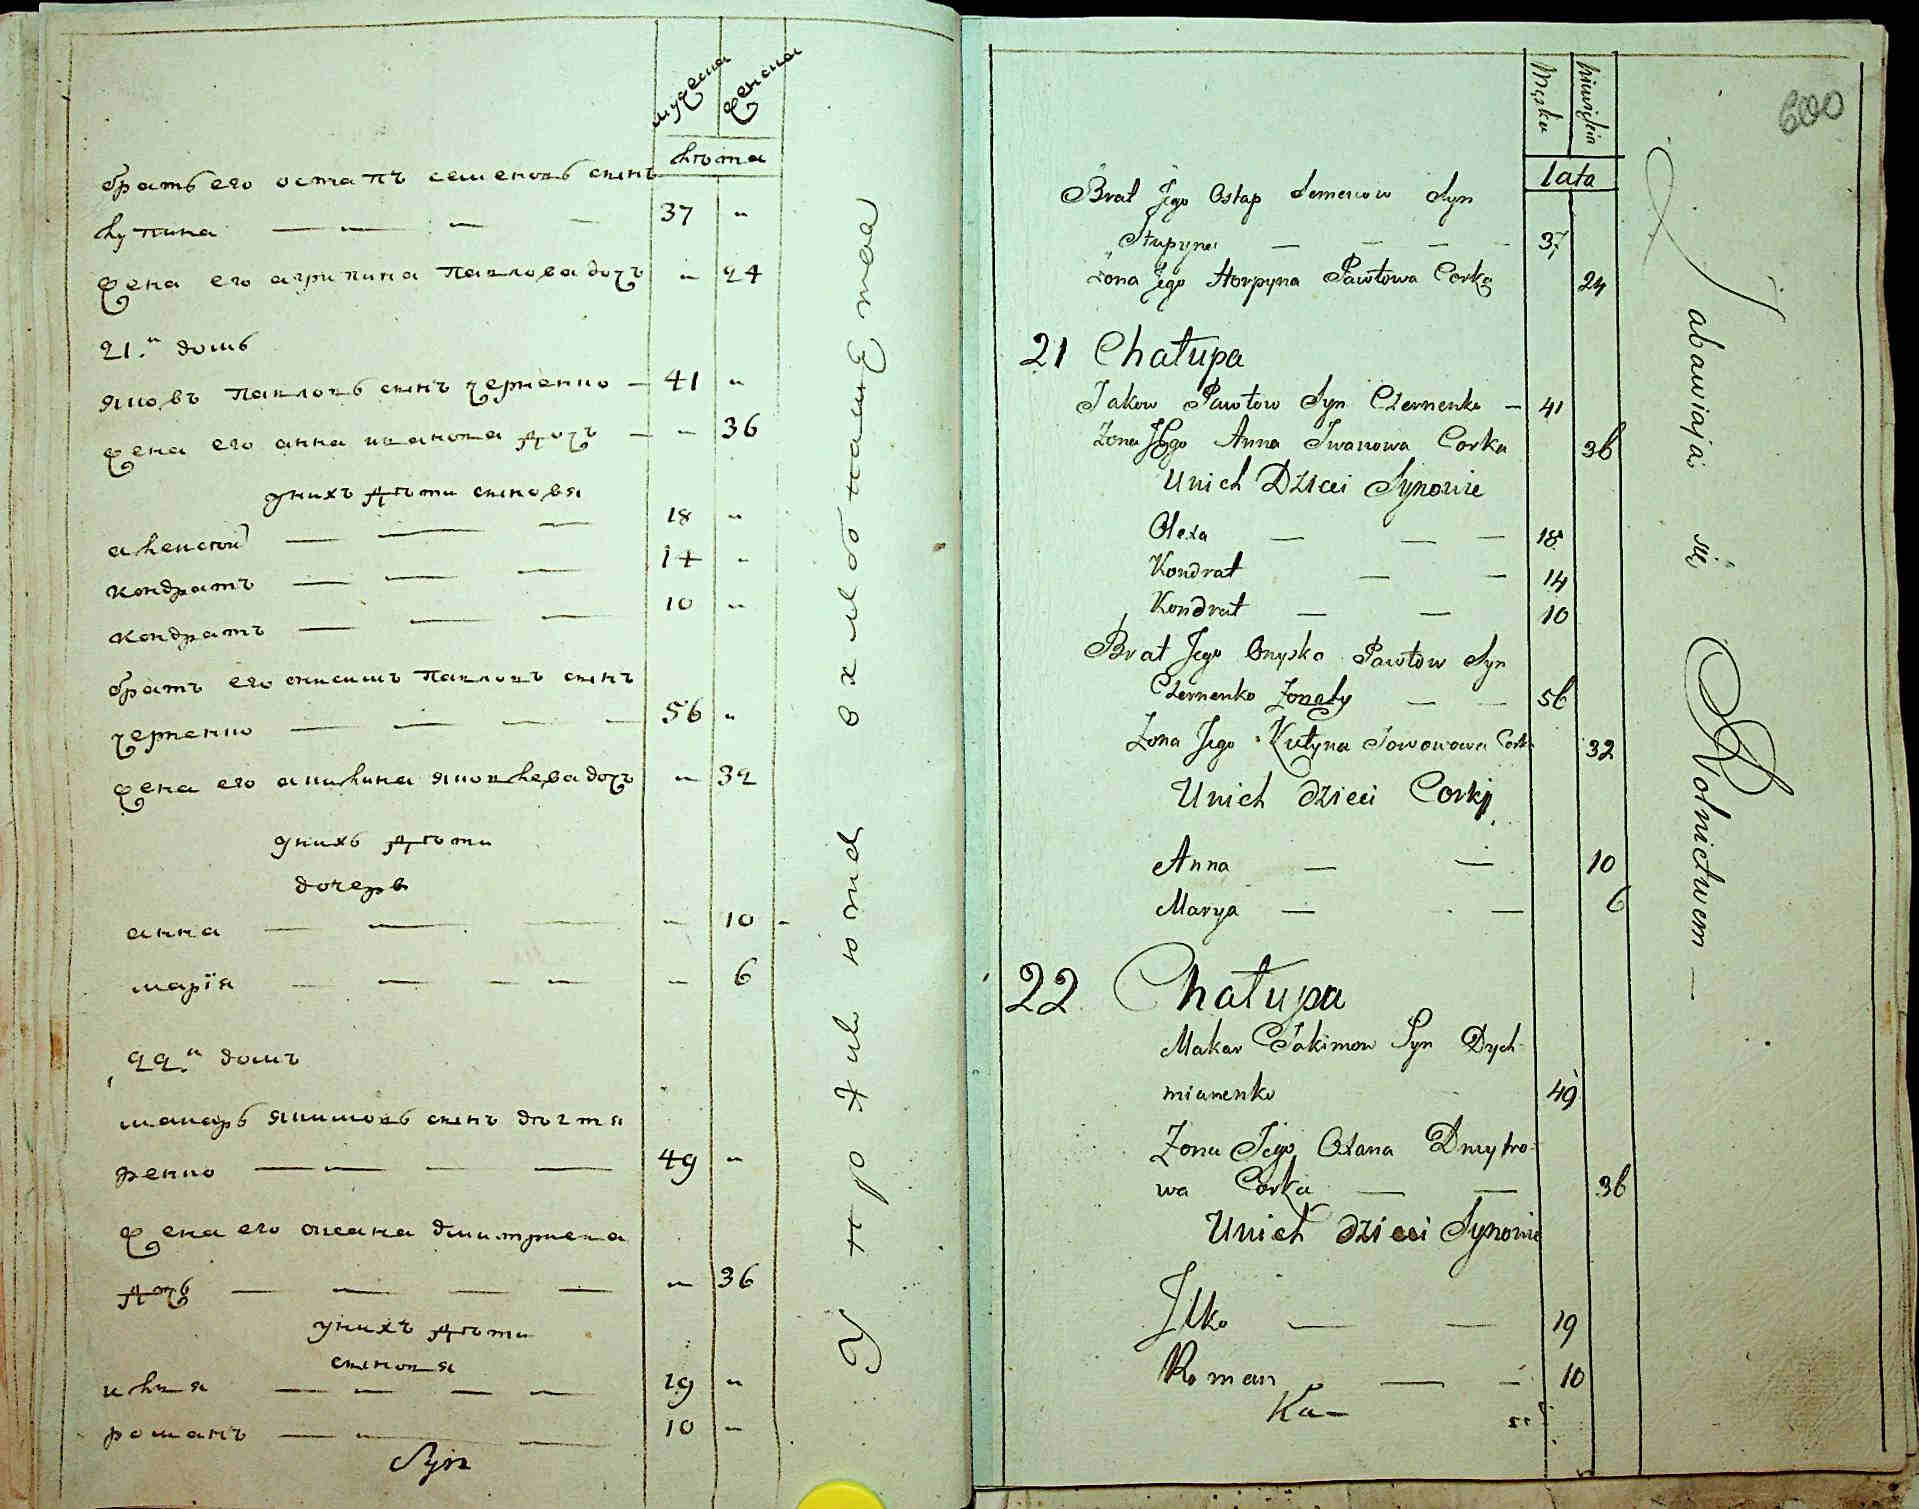 мужеска
женска
лѣта
братъ его остапъ семеновъ сынъ
лупина — — — — 37 „
жена его агрипина павлова дочъ „ 24
21.й домъ
яковъ павловъ сынъ черненко — 41 „
жена его анна иванова дочъ — „ 36
у нихъ дѣти сыновья
алексѣй — — — 18 „
кондратъ — — — 14 „
кондратъ — — — 10 „
братъ его онисимъ павловъ сынъ
черненко — — — — 56 „
жена его акилина яковлева дочъ „ 32
у нихъ дѣти
дочерѣ
анна — — — „ 10
марїя — — — — „ 6
22.й домъ
макаръ якимовъ сынъ
ренко — — — — 49 „
жена его оксана дмитриева
дочъ — — — — „ 36
у нихъ дѣти
сыновья
илья — — — — 19 „
романъ — — — 10 „
Syn
Упражняются в хлѣбопашества
600
Męska
Niewiścia
Lata
Brat Jego Ostap Semenow Syn
Łupyna — — — — 37
Żona Jego Horpyna Pawłowa Corka 24
21 Chałupa
Jakow Pawłow Syn Czernenko — 41
Żona Jego Anna Iwanowa Corka 36
Unich Dzieci Synowie
Olexa — — — 18
Kondrat — — 14
Kondrat — — 10
Brat Jego Onysko Pawłow Syn
Czernenko Żonaty — — 56
Żona Jego Corka 32
Unich dzieci Corki
Anna — — 10
Marya — — 6
22 Chałupa
Makar Jakimow Syn Dych
mianenko 49
Żona Jego Oxana Dmytro-
wa Corka — — 36
Unich dzieci Synowie
Ilko — — 19
Roman — — 10
Ka—
Zabawiaja się Rolnictwem —